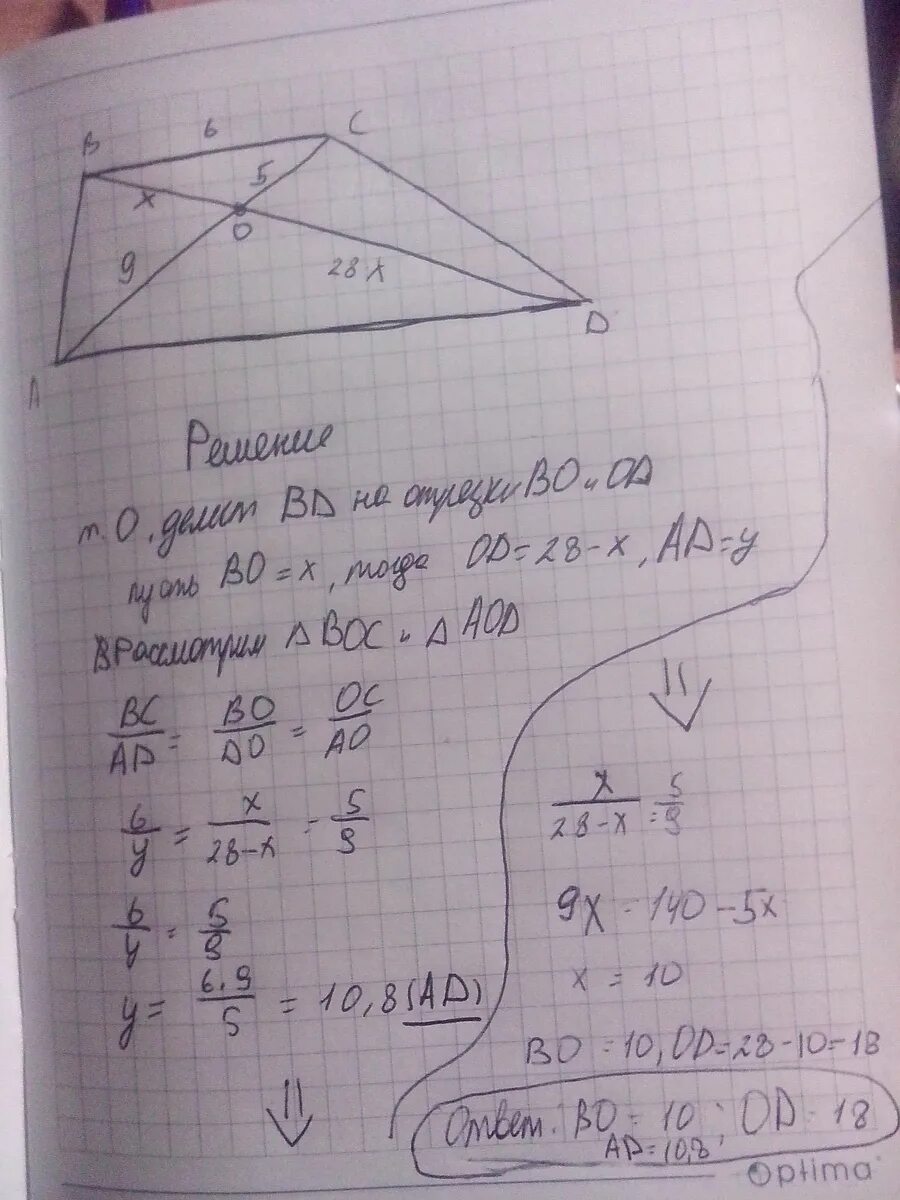 B
6
C
x
5
O
9
28 x
D
A
Решение
т. О. делит BD на отрезки BO и OD
пусть BO = x, тогда OD = 28 - x, AD = y
Рассмотрим Δ BOC и Δ AOD
BC/AD = BO/DO = OC/AO
6/y = x/28-x = 5/9
6/y = 5/9
y = 6·9/5 = 10,8 (AD)
⇓
⇓
x/28-x = 5/9
9x = 140 - 5x
x = 10
BO = 10, OD = 28 - 10 = 18
Ответ: BO = 10; OD = 18
AD = 10,8
Optima